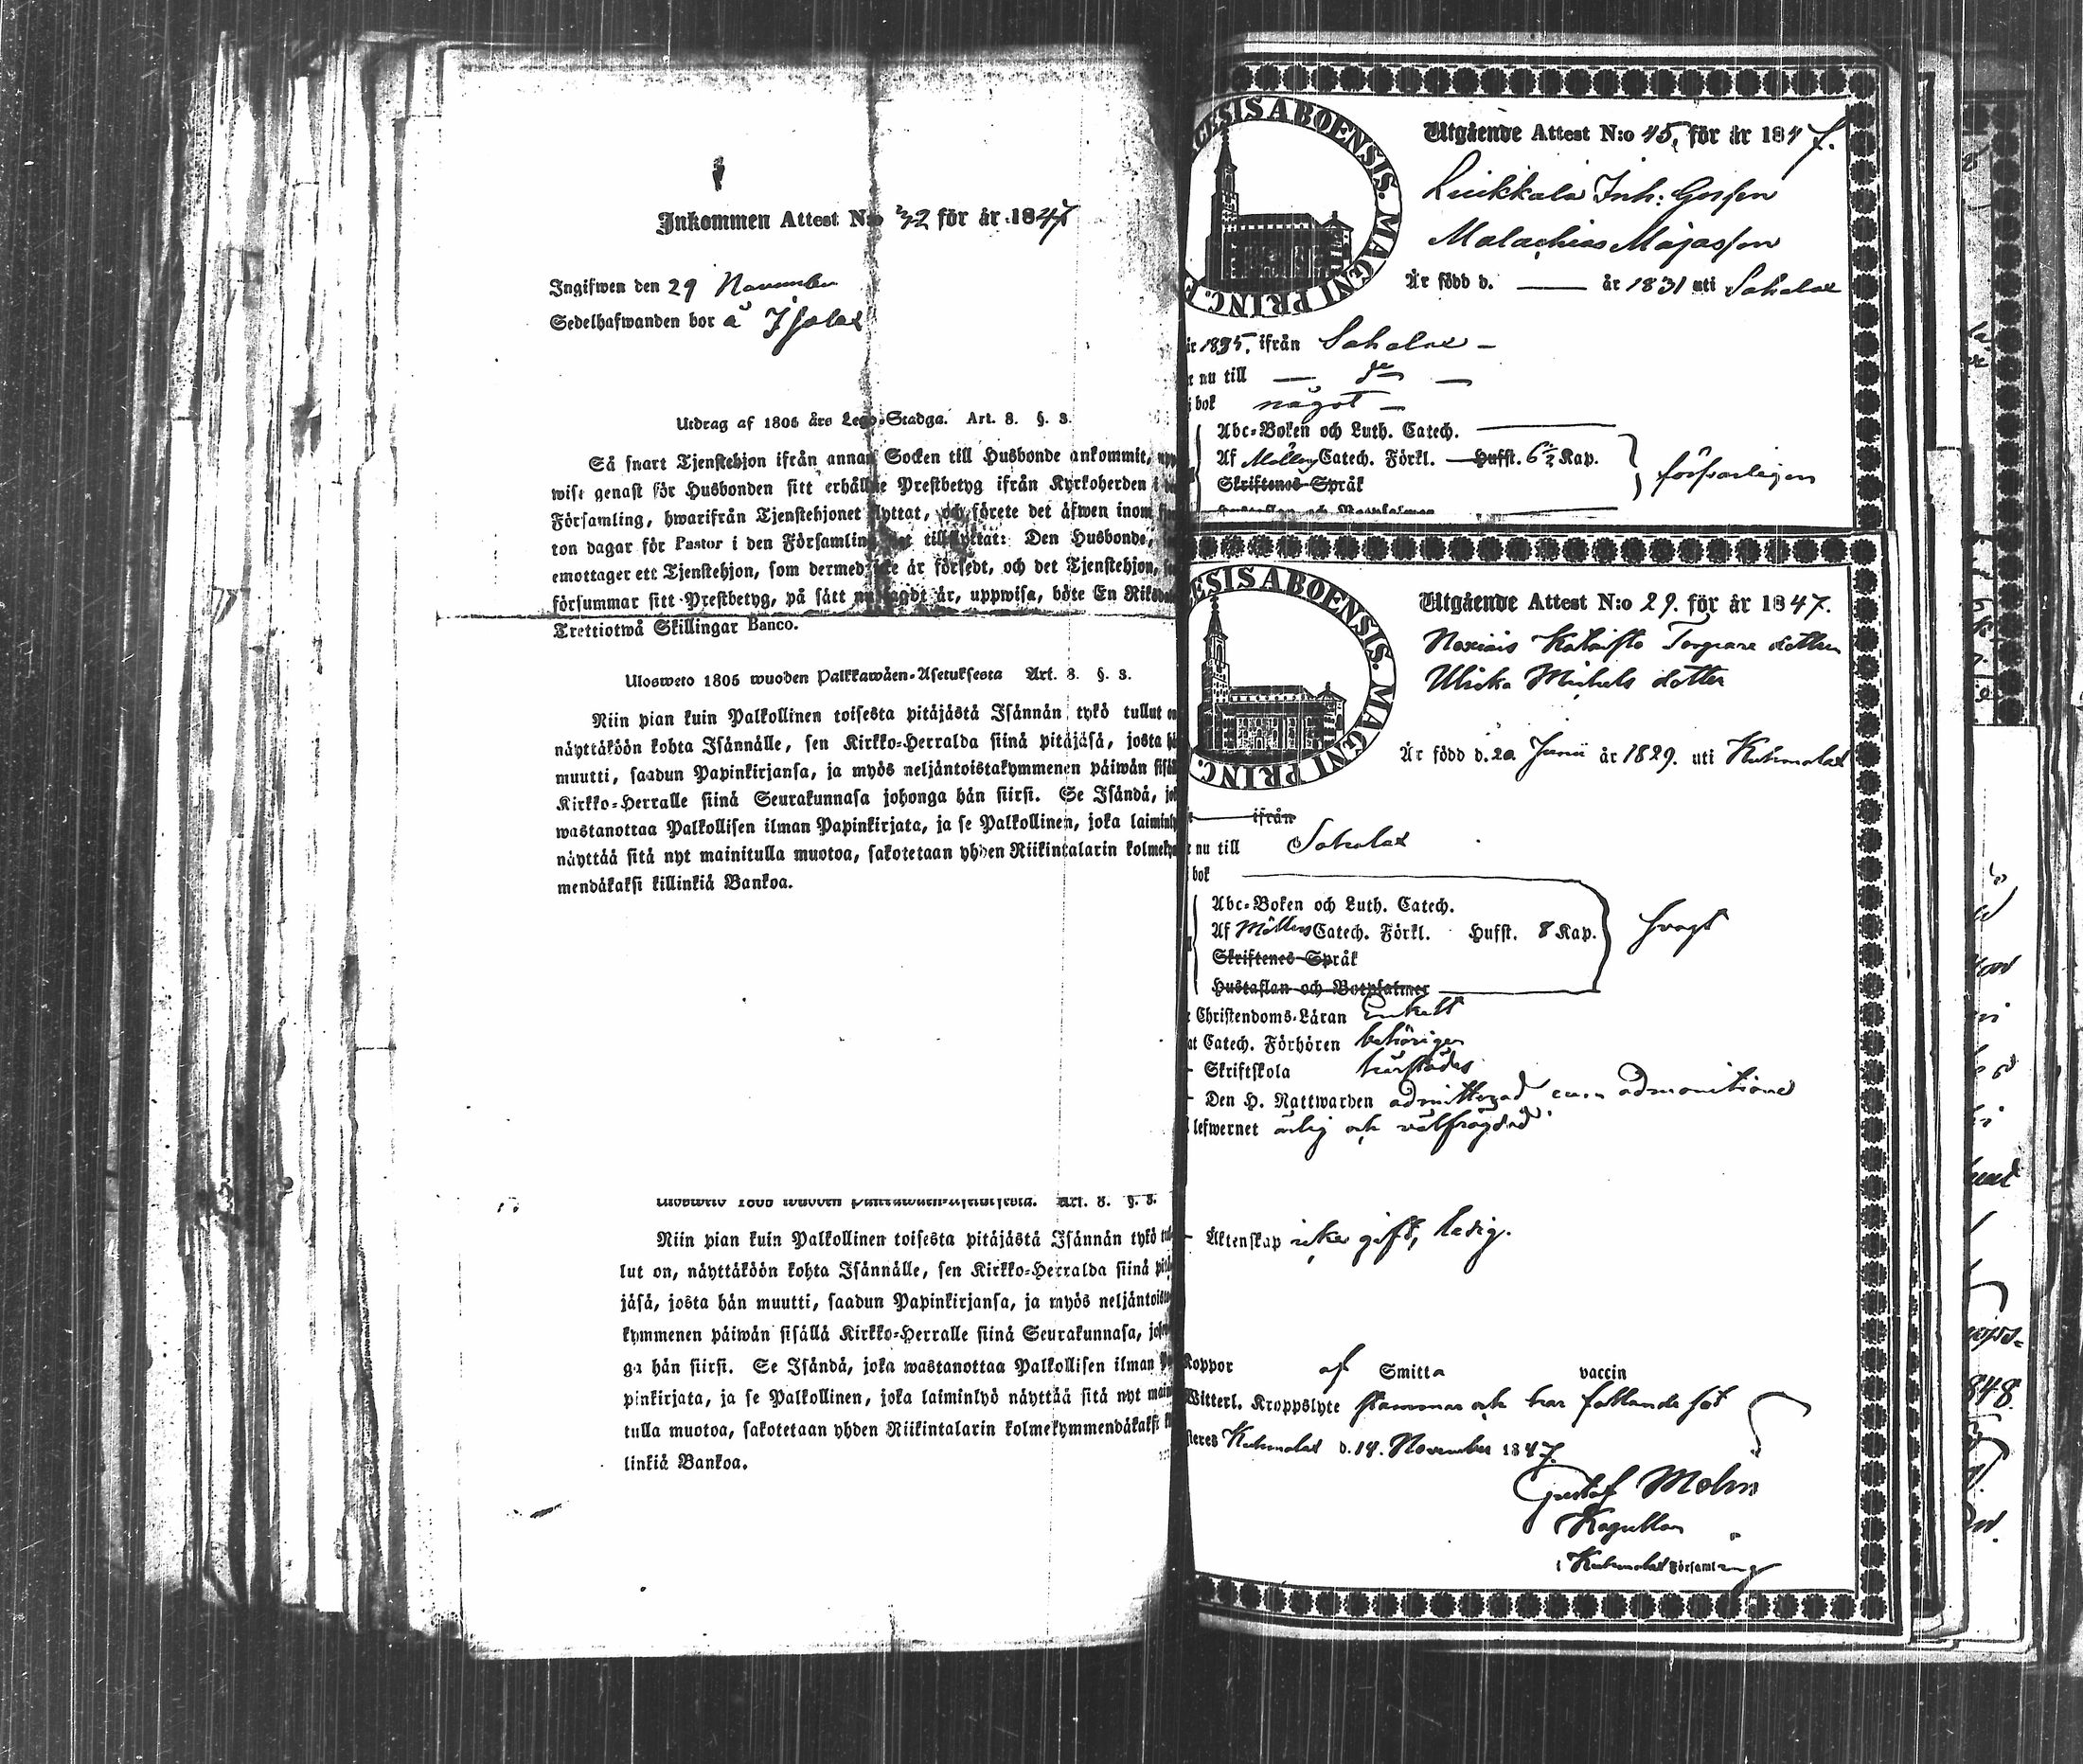 Inkommen Attest N:o 32 för år 1847
Ingifwen den 29 November
Sedelhafwanden bor å Isolax
Utdrag af 1805 års Lego-Stadga. Art. 8. §. 3.
Så snart Tjenstehjon ifrån annan Socken till Husbonde ankommit,
wise genast för Husbonden sitt erhållne Prestbetyg ifrån Kyrkoherden i
Församling, hwarifrån Tjenstehjonet flyttat, och förete det äfwen inom
ton dagar för Pastor i den Församling det tillflyttat: Den Husbonde,
emottager ett Tjenstehjon, som dermed icke är försedt, och det Tjenstehjon,
försummar sitt Prestbetyg, på sätt nu sagdt är, uppwisa, böte En Riksdaler
Trettiotwå Skillingar Banco.
Ulosweto 1805 wuoden Palkkawäen-Asetuksesta Art. 8. §. 3.
Niin pian kuin Palkollinen toisesta pitäjästä Isännän tykö tullut on
näyttäköön kohta Isännälle, sen Kirkko-Herralda siinä pitäjäsä, josta
muutti, saadun Papinkirjansa, ja myös neljäntoistakymmenen päiwän
Kirkko-Herralle siinä Seurakunnasa johonga hän siirsi. Se Isändä,
wastanottaa Palkollisen ilman Papinkirjata, ja se Palkollinen, joka
näyttää sitä nyt mainitulla muotoa, sakotetaan yhden Riikintalarin
mendäkaksi killinkiä Bankoa.
Ulosweto 1805 wuoden Palkkawäen-Asetuksesta. Art. 8. §. 3.
Niin pian kuin Palkollinen toisesta pitäjästä Isännän tykö
lut on, näyttäköön kohta Isännälle, sen Kirkko-Herralda siinä
jäsä, josta hän muutti, saadun Papinkirjansa, ja myös
kymmenen päiwän sisällä Kirkko-Herralle siinä Seurakunnasa,
ga hän siirsi. Se Isändä, joka wastanottaa Palkollisen ilman
pinkirjata, ja se Palkollinen, joka laiminlyö näyttää sitä nyt
tulla muotoa, sakotetaan yhden Riikintalarin kolmekymmendäkaksi
linkiä Bankoa.
CESIS ABOENSIS. MAGNI PRINC. F
Utgående Attest N:o 45, för år 1847.
Luikkala Inh: Gossen
Malachias Majasson
Är född d. — år 1831 uti Sahalax
år 1835, ifrån Sahalax —
nu till — do —
bok något —
Abc-Boken och Luth. Catech.
Af Möllers Catech. Förkl. Hufst. 6½ Kap.
försvarligen
Skriftenes Språk
Hustaflan och Botpsalmer
CESIS ABOENSIS. MAGNI PRINC.
Utgående Attest N:o 29. för år 1847.
Torpare dottren
Ulrika Michels dotter
Är född d. 20 Junii år 1829. uti Kuhmalax
ifrån
nu till Sahalax
bok
Abc-Boken och Luth. Catech.
Af Möllers Catech. Förkl. Hufst. 8 Kap.
svagt
Skriftenes Språk
Hustaflan och Botpsalmer
Christendoms-Läran Enkelt
Catech. Förhören behörigen
Skriftskola härstädes
Den H. Nattwarden admitterad cum admonitione
lefwernet ärlig och välfrägdad
Äktenskap icke gift, ledig.
Koppor af Smitta vaccin
Witterl. Kroppslyte stammar och har fallande sot
Kuhmalax d. 14. November 1847.
Gustaf Molin
Kapellan
i Kuhmalax Församling